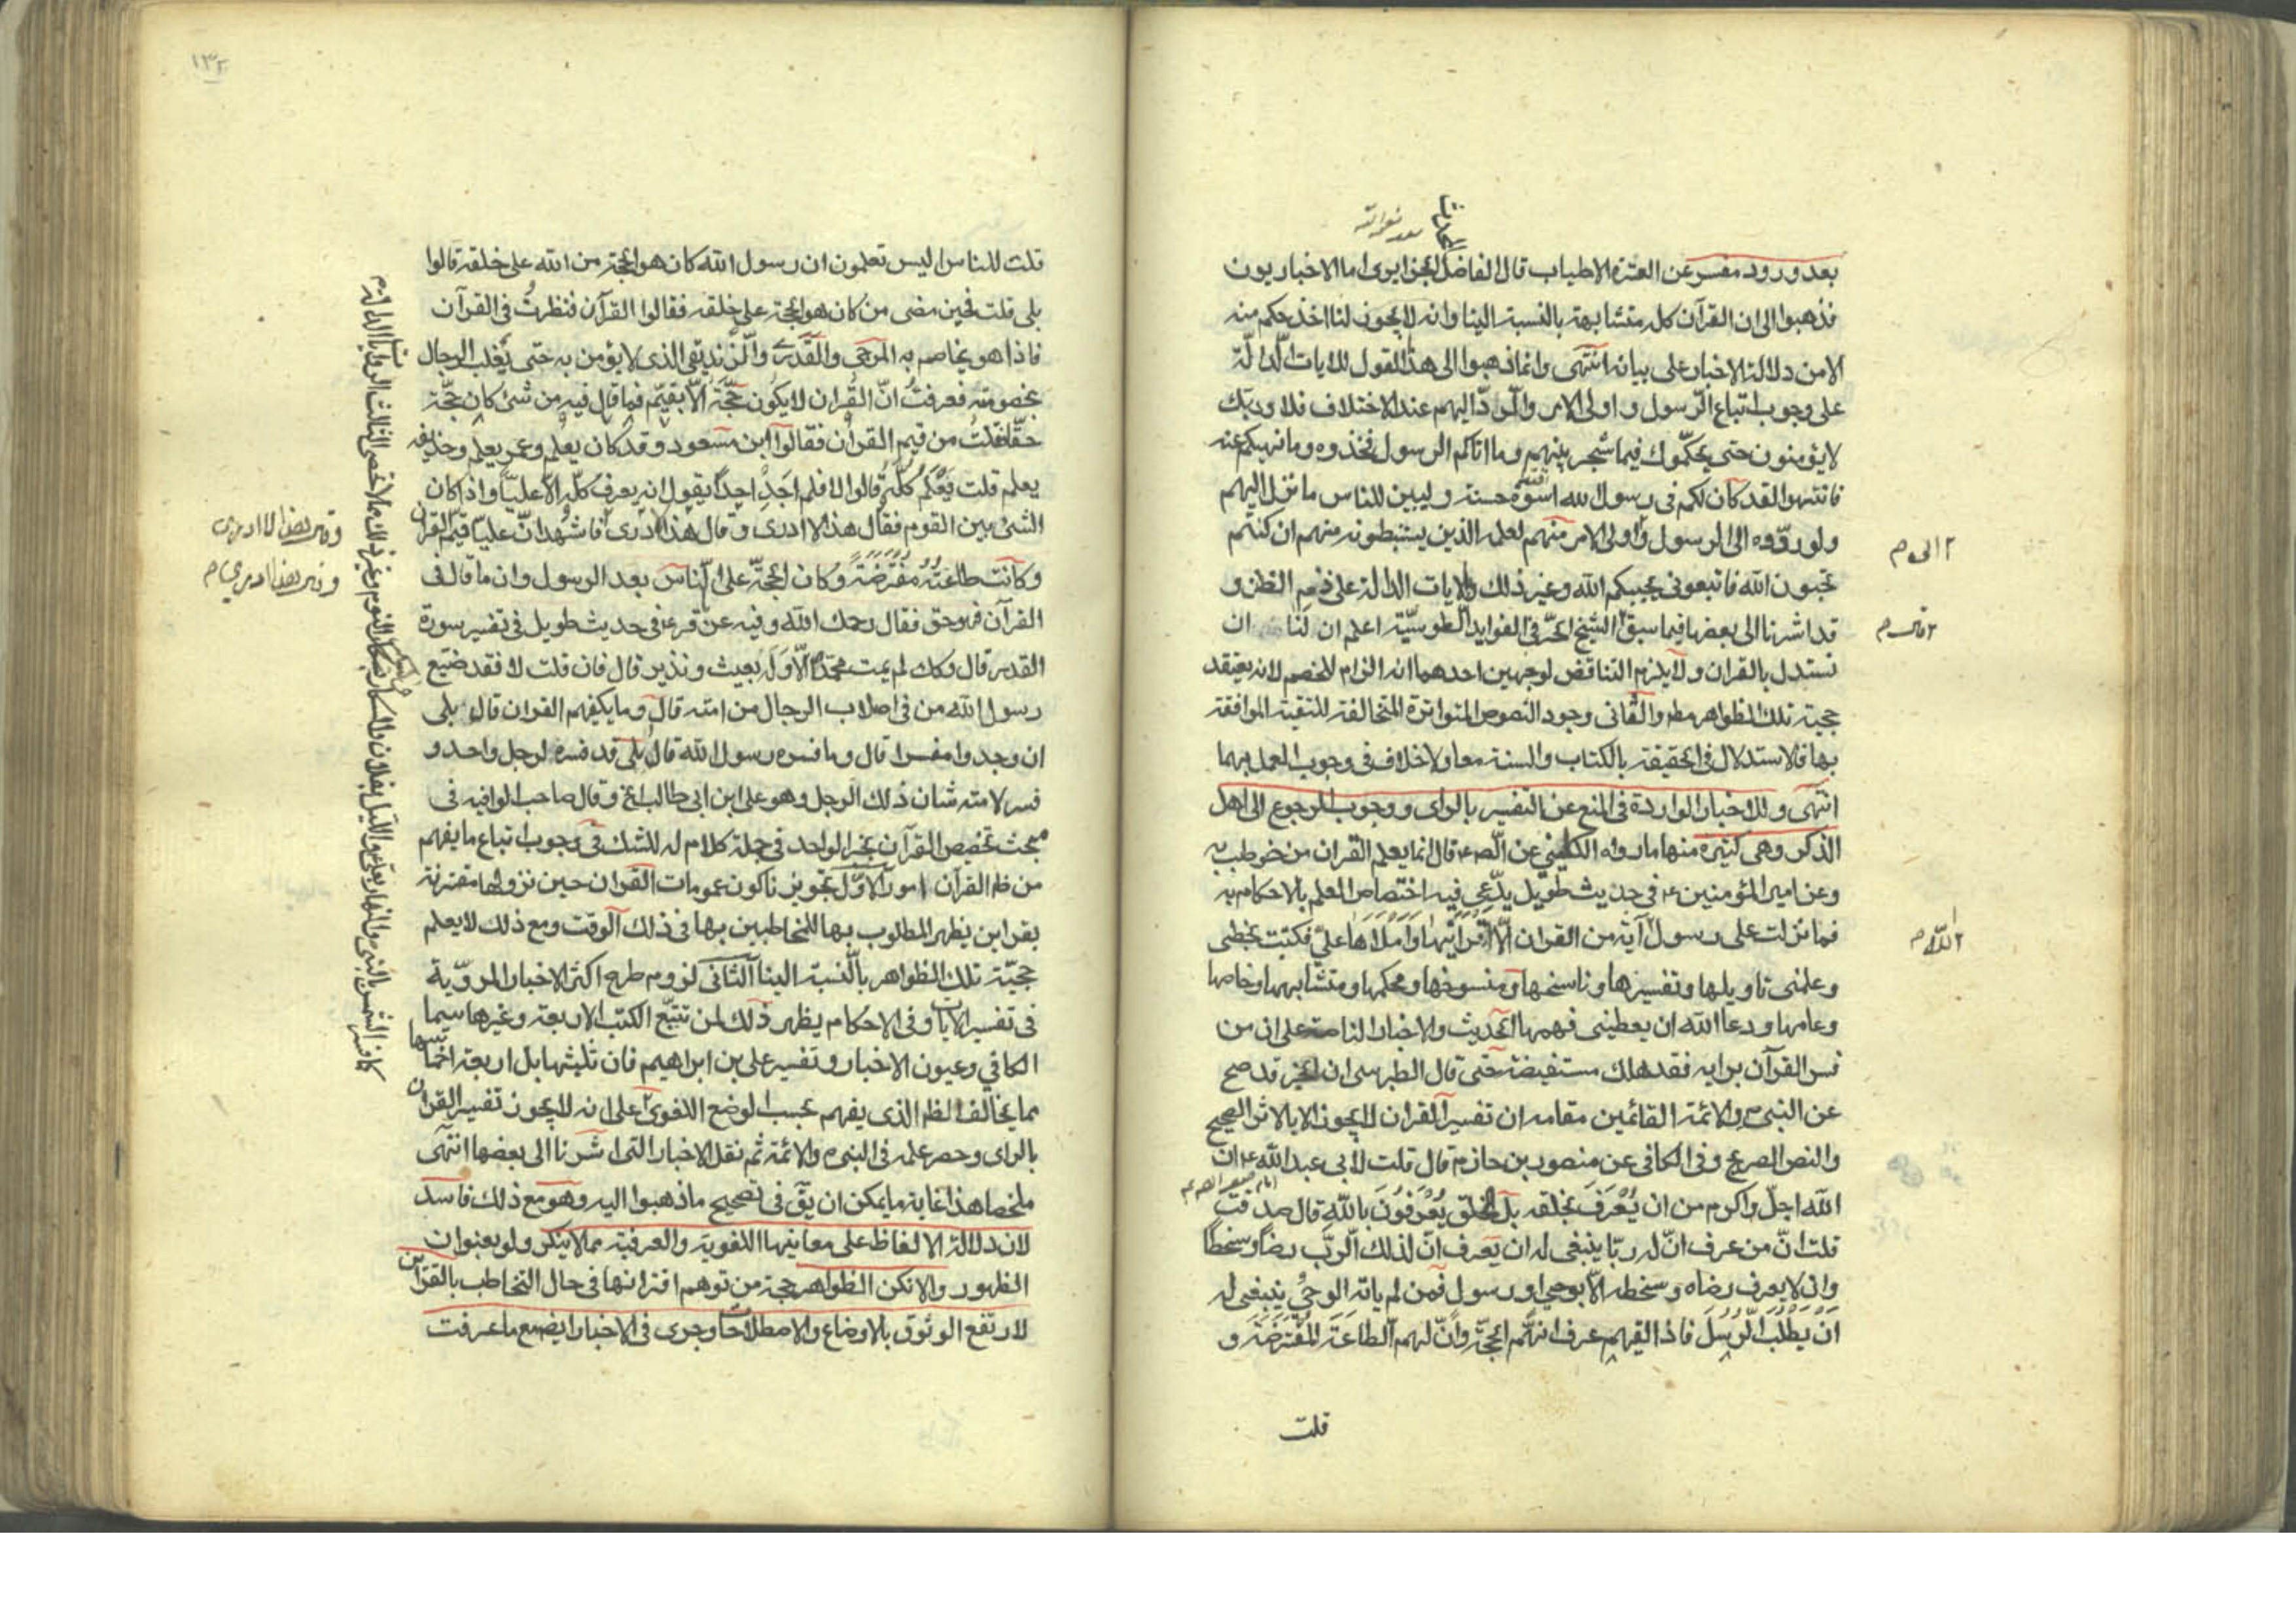 بعد ورود مفسر عن العترة الاطياب قال الفاضل الجزايرى اما الاخباريون
فذهبوا الى ان القرآن كله متشابهة بالنسبة الينا وانه لا يجوز لنا اخذ حكم منه
الا من دلالة الاخبار على بيانه انتهى وانما ذهبوا الى هذا القول للايات الدالة
على وجوب اتباع الرسول واولى الامر والرد اليهم عند الاختلاف فلا وربك
لا يؤمنون حتى يحكموك فيما شجر بينهم وما اتاكم الرسول فخذوه وما نهيكم عنه
فانتهوا لقد كان لكم فى رسول الله اسوة حسنة وليبين للناس ما نزل اليهم
ولو ردوه الى الرسول واولى الامر منهم لعلمه الذين يستنبطونه منهم ان كنتم
تحبون الله فاتبعونى يحببكم الله وغير ذلك والايات الدالة على ذم الظن و
قد اشرنا الى بعضها فيما سبق الشيخ الحر فى الفوايد الطوسية اعلم ان لنا ان
نستدل بالقران ولا يلزم التناقض لوجهين احدهما انه الزام للخصم لانه يعتقد
حجية تلك الظواهر مط والثانى وجود النصوص المتواترة المخالفة للتقية الموافقة
بها فالاستدلال فى الحقيقة بالكتاب والسنة معا ولا خلاف فى وجوب العمل بهما
انتهى وللاخبار الواردة فى المنع عن التفسير بالراى ووجوب الرجوع الى اهل
الذكر وهى كثيرة منها ما رواه الكلينى عن الص ع قال انما يعلم القران من خوطب به
وعن امير المؤمنين ع فى حديث طويل يدعى فيه اختصاص العلم بالاحكام به
فما نزلت على رسول آية من القران الا اقرانيها واملاها على فكتبت بخطى
وعلمنى تاويلها وتفسيرها وناسخها ومنسوخها ومحكمها ومتشابهها وخاصها
وعامها ودعا الله ان يعطينى فهمها الحديث والاخبار الناصة على ان من
فسر القرآن برايه فقد هلك مستفيضة حتى قال الطبرسى ان الخبر قد صح
عن النبى ص والائمة القائمين مقامه ان تفسير القران لا يجوز الا بالاثر الصحيح
والنص الصريح وفى الكافى عن منصور بن حازم قال قلت لابى عبد الله ع ان
الله اجل واكرم من ان يعرف بخلقه بل الخلق يعرفون بالله قال صدقت
قلت ان من عرف ان له ربا ينبغى له ان يعرف ان لذلك الرب رضا وسخطا
وان لا يعرف رضاه وسخطه الا بوحى او رسول فمن لم ياته الوحى ينبغى له
ان يطلب الرسل فاذا لقيهم عرف انهم الحجة وان لهم الطاعة المفترضة و
قلت
١٣٢
قلت للناس اليس تعلمون ان رسول الله كان هو الحجة من الله على خلقه قالوا
بلى قلت فحين مضى من كان هو الحجة على خلقه فقالوا القرآن فنظرت فى القرآن
فاذا هو يخاصم به المرجى والقدرى والزنديق الذى لا يؤمن به حتى يغلب الرجال
بخصومته فعرفت ان القران لا يكون حجة الا بقيم فما قال فيه من شئ كان حجة
حقا فقلت من قيم القرآن فقالوا ابن مسعود وقد كان يعلم وعمر يعلم وحذيفه
يعلم قلت يعلم كله قالوا لا فلم اجد احدا يقول انه يعرف كله الا عليا واذا كان
الشئ بين القوم فقال هذا لا ادرى وقال هذا ادرى فاشهد ان عليا قيم القران
وكانت طاعته مفترضة وكان الحجة على الناس بعد الرسول وان ما قال فى
القرآن فهو حق فقال رحمك الله وفيه عن قر ع فى حديث طويل فى تفسير سورة
القدر قال وكك لم يمت محمد الا وله بعيث ونذير قال فان قلت لا فقد ضيع
رسول الله من فى اصلاب الرجال من امته قال وما يكفيهم القران قال بلى
ان وجدوا مفسرا قال وما فسره رسول الله قال بلى قد فسره لرجل واحد و
فسر لامته شان ذلك الرجل وهو على ابن ابى طالب الخ وقال صاحب الوافيه فى
مبحث تخصيص القرآن بخبر الواحد فى جملة كلام له للشك فى وجوب اتباع ما يفهم
من ظ القرآن امور الاول تجويز ناكون عمومات القران حين نزولها مقترنة
بقراين يظهر المطلوب بها للمخاطبين بها فى ذلك الوقت ومع ذلك لا يعلم
حجية تلك الظواهر بالنسبة الينا الثانى لزوم طرح اكثر الاخبار المروية
فى تفسير الايات وفى الاحكام يظهر ذلك لمن تتبع الكتب الاربعة وغيرها سيما
الكافي وعيون الاخبار وتفسير على بن ابراهيم فان ثلثها بل اربعة اخماسها
مما يخالف الظ الذى يفهم بحسب الوضع اللغوى على انه لا يجوز تفسير القران
بالراى وحصر علمه فى النبى ص والائمة ثم نقل الاخبار التى اشرنا الى بعضها انتهى
ملخصا هذا غاية ما يمكن ان يق فى تصحيح ما ذهبوا اليه وهو مع ذلك فاسد
لان دلالة الالفاظ على معانيها اللغوية والعرفية مما لا ينكر ولو بعنوان
الظهور والا نكن الظواهر حجة من توهم اقترانها فى حال التخاطب بالقراين
لارتفع الوثوق بالاوضاع والاصطلاحات وجرى فى الاخبار ايض مع ما عرفت
وقال هذا لا ادرى
وقال هذا ادرى م